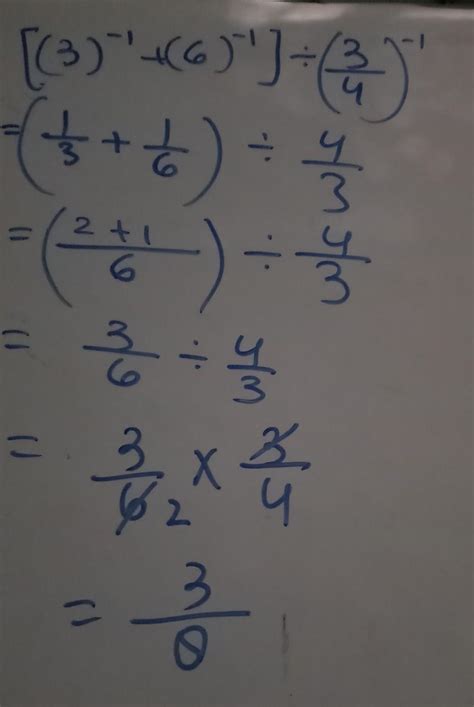 [(3)⁻¹+(6)⁻¹]÷(3/4)⁻¹
=(1/3 + 1/6) ÷ 4/3
=((2+1)/6) ÷ 4/3
= 3/6 ÷ 4/3
= 3/6 2 × 3/4
= 3/θ